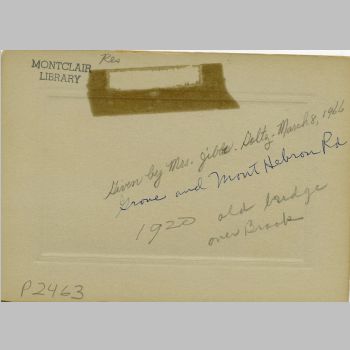 MONTCLAIR
LIBRARY
Res
Given by Mrs. Gibbs. March 8, 1966
Grove and Mont Hebron Rd
1920 old bridge
over Brook
P2463